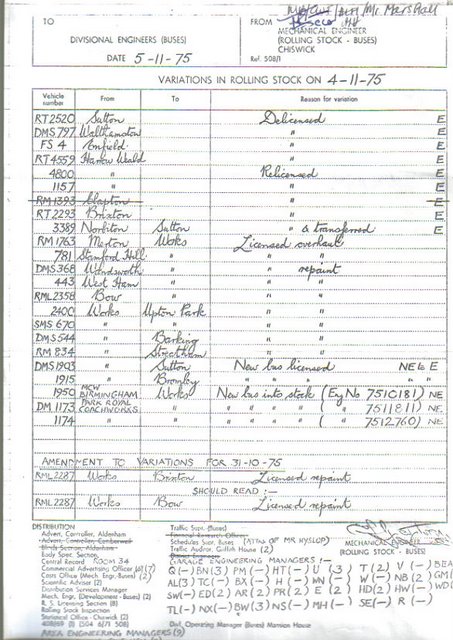 Mr Marshall
TO
FROM MECHANICAL ENGINEER
DIVISIONAL ENGINEERS (BUSES)
(ROLLING STOCK - BUSES)
CHISWICK
DATE 5-11-75
Ref. 508/1
VARIATIONS IN ROLLING STOCK ON 4-11-75
Vehicle number From To Reason for variation
RT2520 Sutton Delicensed E
DMS797 Walthamstow " E
FS 4 Enfield " E
RT4559 Harrow Weald " E
4800 " Relicensed E
1157 " " E
RM1393 Clapton " E
RT2293 Brixton " E
3389 Norbiton Sutton " & transferred E
RM1763 Merton Works Licensed overhaul
781 Stamford Hill " " "
DMS368 Wandsworth " " repaint
443 West Ham " " "
RML2358 Bow " " "
2400 Works Upton Park " "
SMS670 " " " "
DMS544 " Barking " "
RM834 " Streatham " "
DMS1903 " Sutton New bus licensed NE to E
1915 " Bromley " " " " " "
1950 MCW BIRMINGHAM Works New bus into stock (Eng No 7510181) NE
DM1173 PARK ROYAL COACHWORKS " " " " " ( " 7511811) NE
1174 " " " " " " ( " 7512760) NE
AMENDMENT TO VARIATIONS FOR 31-10-75
RML2287 Works Brixton Licensed repaint
SHOULD READ :-
RML2287 Works Bow Licensed repaint
DISTRIBUTION
Adven. Controller, Aldenham
Adven. Controller, Camberwell
Body Spec. Section
Central Record ROOM 34
Commercial Advertising Officer (2)
Costs Office (Mech. Engr. Buses) (2)
Scientific Adviser (2)
Distribution Services Manager
Mech. Engr. (Development - Buses) (2)
R. S. Licensing Section (8)
Rolling Stock Inspection
Statistical Office - Chiswick (2)
AREA ENGINEERING MANAGERS (9)
Traffic Supt. (Buses)
Financial Research Officer
Schedules Supt. Buses (ATTN OF MR HYSLOP)
Traffic Auditor, Griffith House (2)
MECHANICAL ENGINEER
(ROLLING STOCK - BUSES)
GARAGE ENGINEERING MANAGERS :-
Divl. Operating Manager (Buses) Mansion House